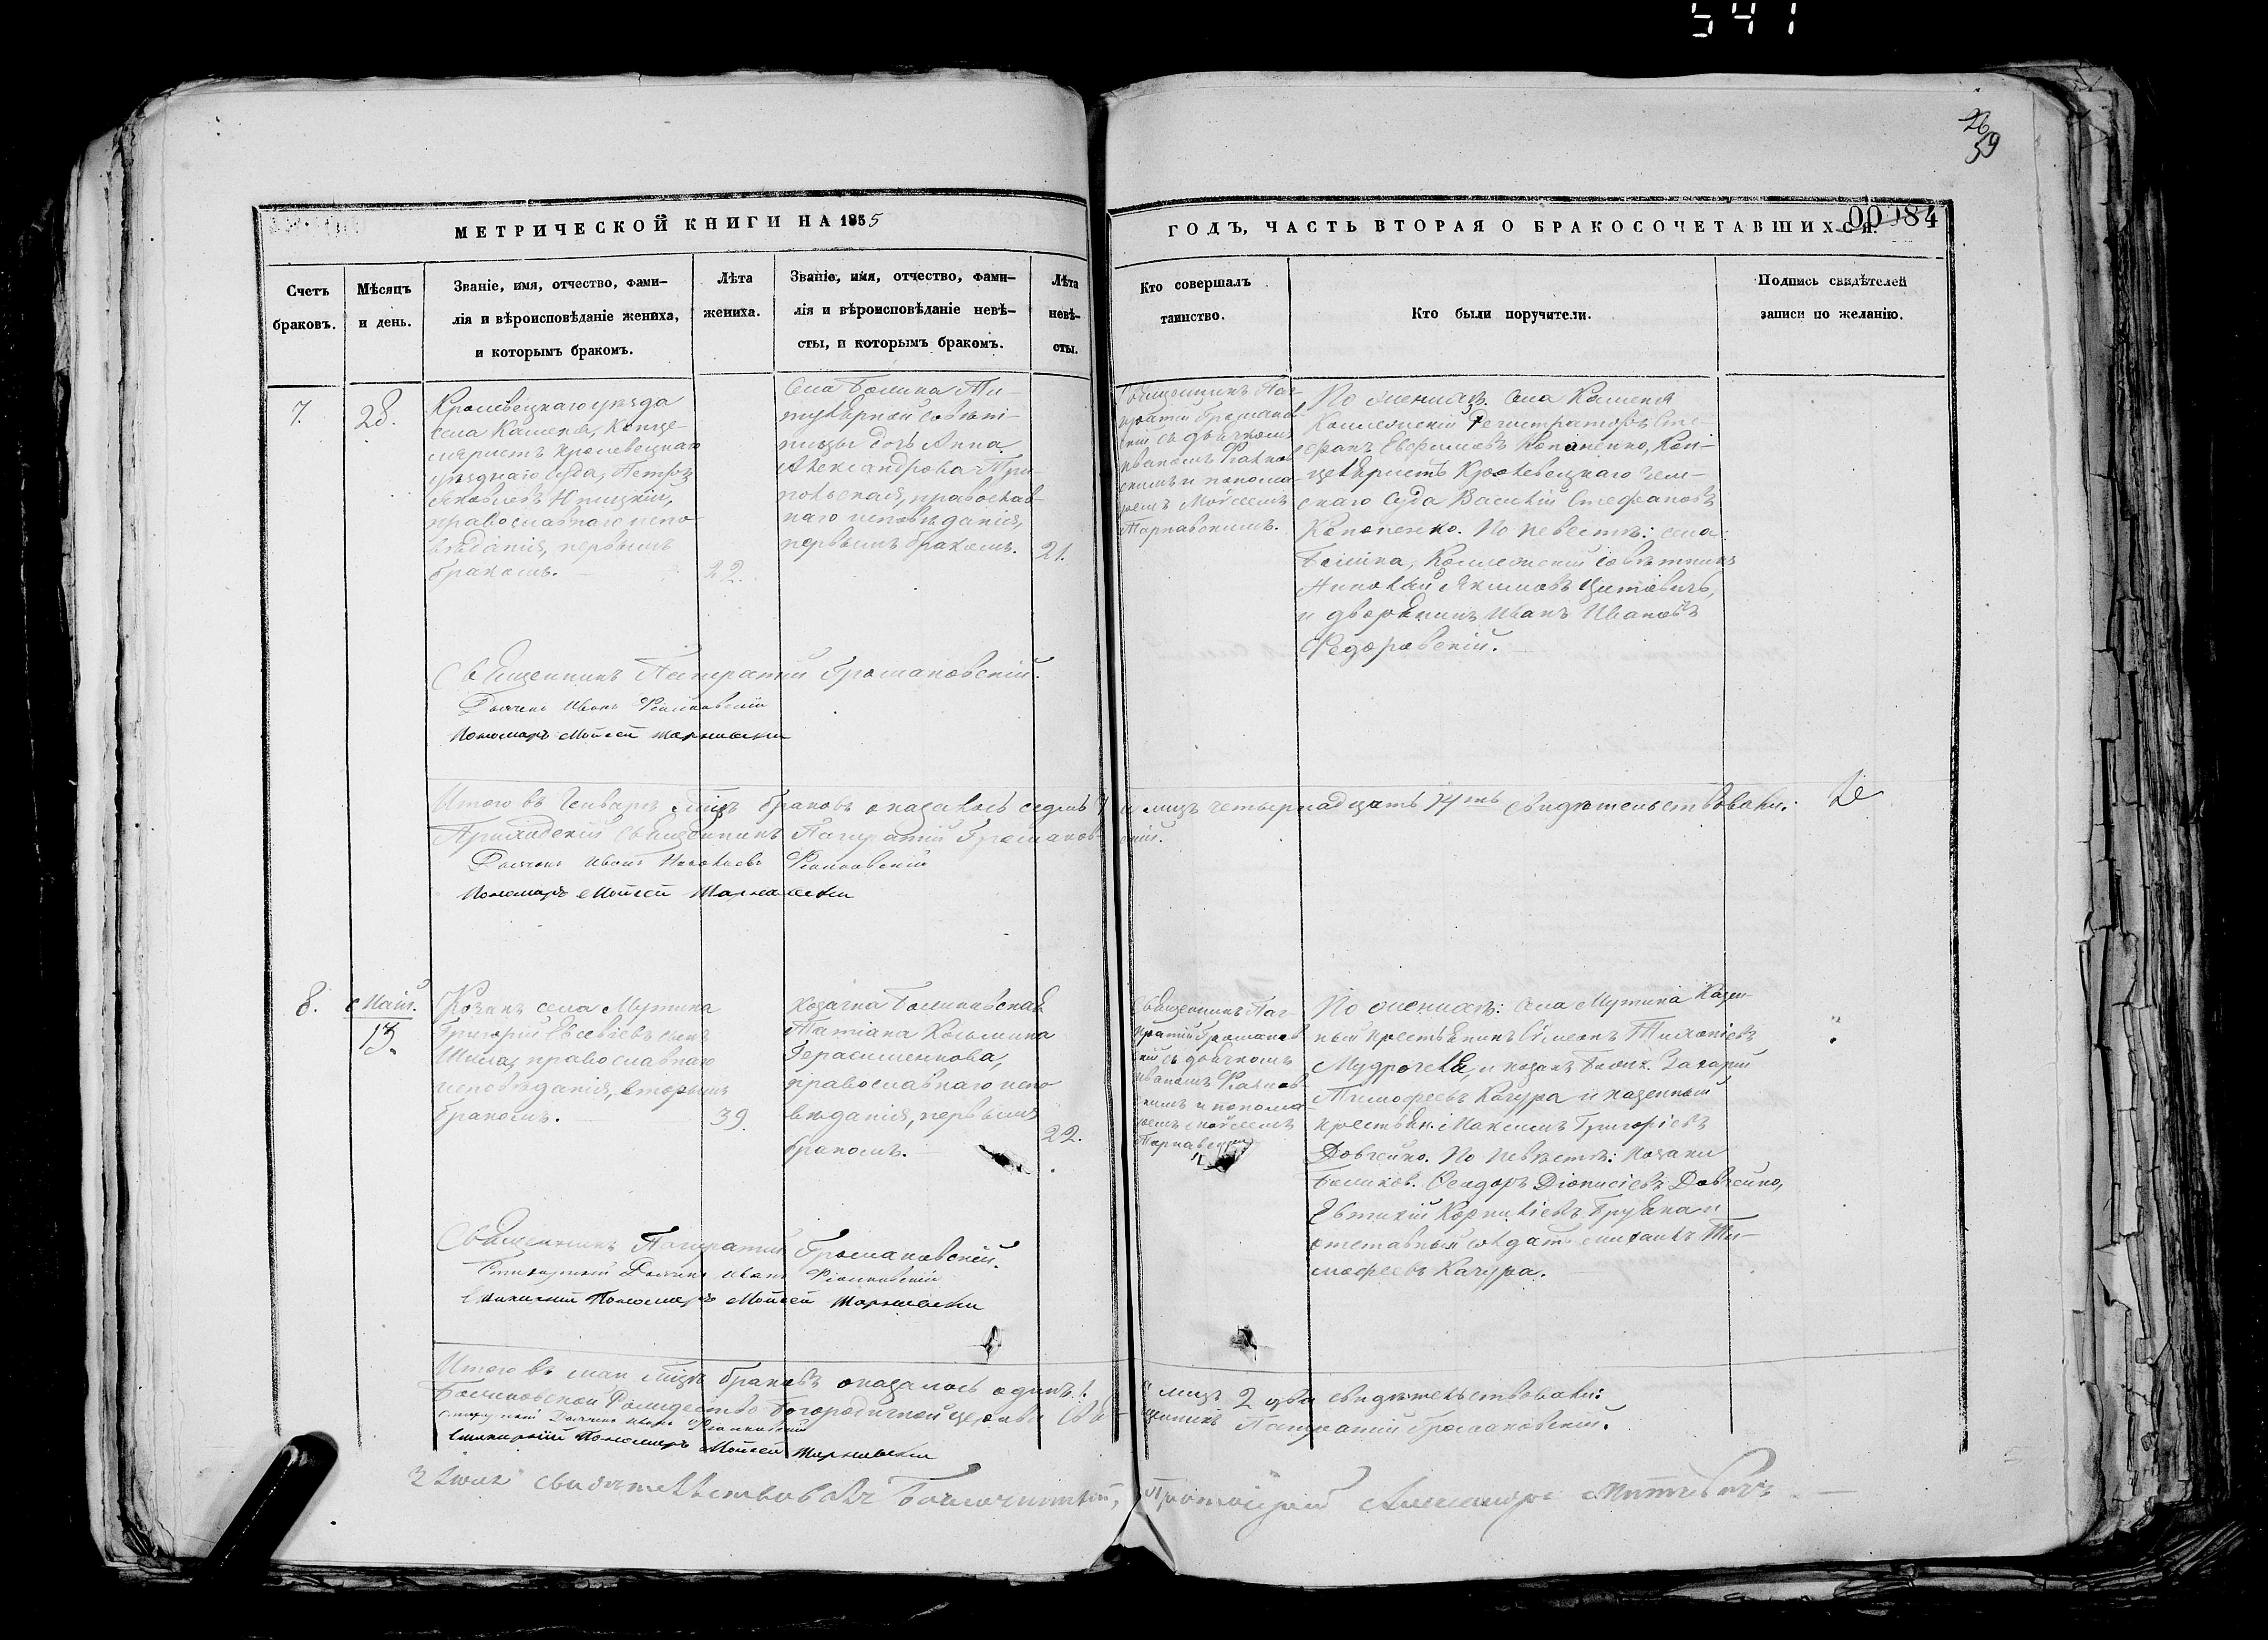 541
26
59
МЕТРИЧЕСКОЙ КНИГИ НА 1855
ГОДЪ, ЧАСТЬ ВТОРАЯ О БРАКОСОЧЕТАВШИХСЯ.
00084
Счетъ
браковъ.
Мѣсяцъ
и день.
Званіе, имя, отчество, фами-
лія и вѣроисповѣданіе жениха,
и которымъ бракомъ.
Лѣта
жениха.
Званіе, имя, отчество, фами-
лія и вѣроисповѣданіе невѣ-
сты, и которымъ бракомъ.
Лѣта
невѣ-
сты.
Кто совершалъ
таинство.
Кто были поручители.
Подпись свидѣтелей
записи по желанію.
7.
28.
Кролевецкаго уѣзда
села Каменя, Канце-
ляристъ Кролевецкаго
уѣзднаго Суда, Петръ
Яковлевъ
православнаго испо-
вѣданія, первымъ
бракомъ.
22.
Села Ти-
тулярной совѣт-
ницы дочь Анна
Александрова
православ-
наго исповѣданія,
первымъ бракомъ.
21.
Священникъ Пан-
кратій Громанов-
скій съ дьячкомъ
Иваномъ
и понома-
ремъ Мойсеемъ
Тарнавскимъ.
По женихѣ: села Каменя
Коллежскій Регистраторъ Сте-
фанъ Евфимовъ Кононенко, Кан-
целяристъ Кролевецкаго Зем-
скаго Суда Василій Стефановъ
Кононенко. По невестѣ: села
Коллежскій Совѣтникъ
Николай Якимовъ Цитовичъ,
и дворянинъ Иванъ Ивановъ
Федоровскій.
Священникъ Панкратій Громановскій.
Дьячекъ Иванъ
Пономарь Мойсей Тарнавскій
Итого въ Генварѣ мцѣ браковъ оказалось седмь 7
а лицъ четырнадцать 14ть свидѣтельствовали:
Приходскій Священникъ Панкратій Громанов-
скій.
Дьячекъ Иванъ Николаевъ
Пономарь Мойсей Тарнавскій
8.
Маія.
13.
Козакъ села Мутина
Григорій Евсевіевъ сынъ
православнаго
исповѣданія, вторымъ
бракомъ.
39.
Козачка
Татіана Козьмина
Герасименкова,
православнаго испо
вѣданія, первымъ
бракомъ.
22.
Священникъ Пан-
кратій Громанов
скій съ дьячкомъ
Иваномъ
и понома
ремъ Мойсеемъ
Тарнавскимъ
По женихѣ: села Мутина Казен-
ный крестьянинъ Сѵмеонъ Тихоніевъ
и козакъ Захарій
Тимофеевъ Качура и казенный
крестьян. Максимъ Григоріевъ
Довгейко. По невѣстѣ: козаки
Феодоръ Діонисіевъ Довгейко,
Евтихій Корниліевъ и
отставный солдатъ Михаилъ Ти-
мофеевъ Качура.
Священникъ Панкратій Громановскій.
Стихарный Дьячекъ Иванъ
Стихарный Пономарь Мойсей Тарнавскій
Итого въ маи мцѣ браковъ оказалось одинъ 1.
а лицъ 2 два свидѣтельствовали:
Рождество Богородичной церкви Свя-
щенникъ Панкратій Громановскій.
Стихарный Дьячекъ Иванъ
Стихарный Пономарь Мойсей Тарнавскій
свидѣтельствовалъ Благочинный,
Протоіерей Александръ